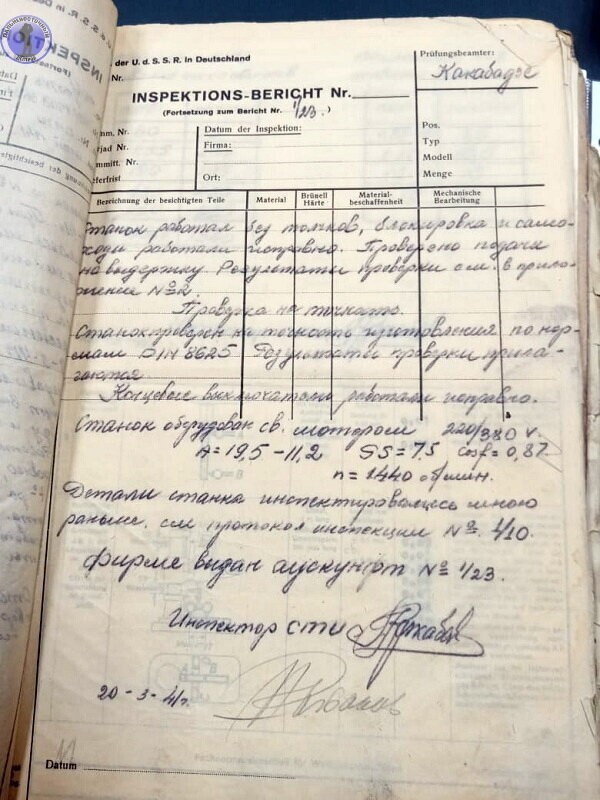 ДАЛЬНЕВОСТОЧНЫЙ
der U. d. S. S. R. in Deutschland
Nr.
Prüfungsbeamter:
Какабадзе
INSPEKTIONS-BERICHT Nr.
(Fortsetzung zum Bericht Nr. 1/23.)
mm. Nr.
Datum der Inspektion:
Pos.
rjad Nr.
Firma:
Typ
mmitt. Nr.
Modell
Herfrist
Ort:
Menge
Bezeichnung der besichtigten Teile
Material
Brünell Härte
Material-beschaffenheit
Mechanische Bearbeitung
Станок работал без толчков, блокировка и само-
ходы работали исправно. Проверено подачи
на выдержку. Результаты проверки см. в прило-
жении №2.
Проверка на точность.
Станок проверен на точность изготовления по нор-
мам DIN 8625 Результаты проверки прила-
гаются
Концевые выключатели работали исправно.
Станок оборудован св. мотором 220/380 V.
A = 19,5 - 11,2 PS = 7,5 cosf = 0,87
n = 1440 об/мин.
Детали станка инспектировались мною
раньше, см протокол инспекции № 1/10.
Фирме выдан аускунфт № 1/23.
Инспектор СТИ
20 - 3 - 41г.
Datum